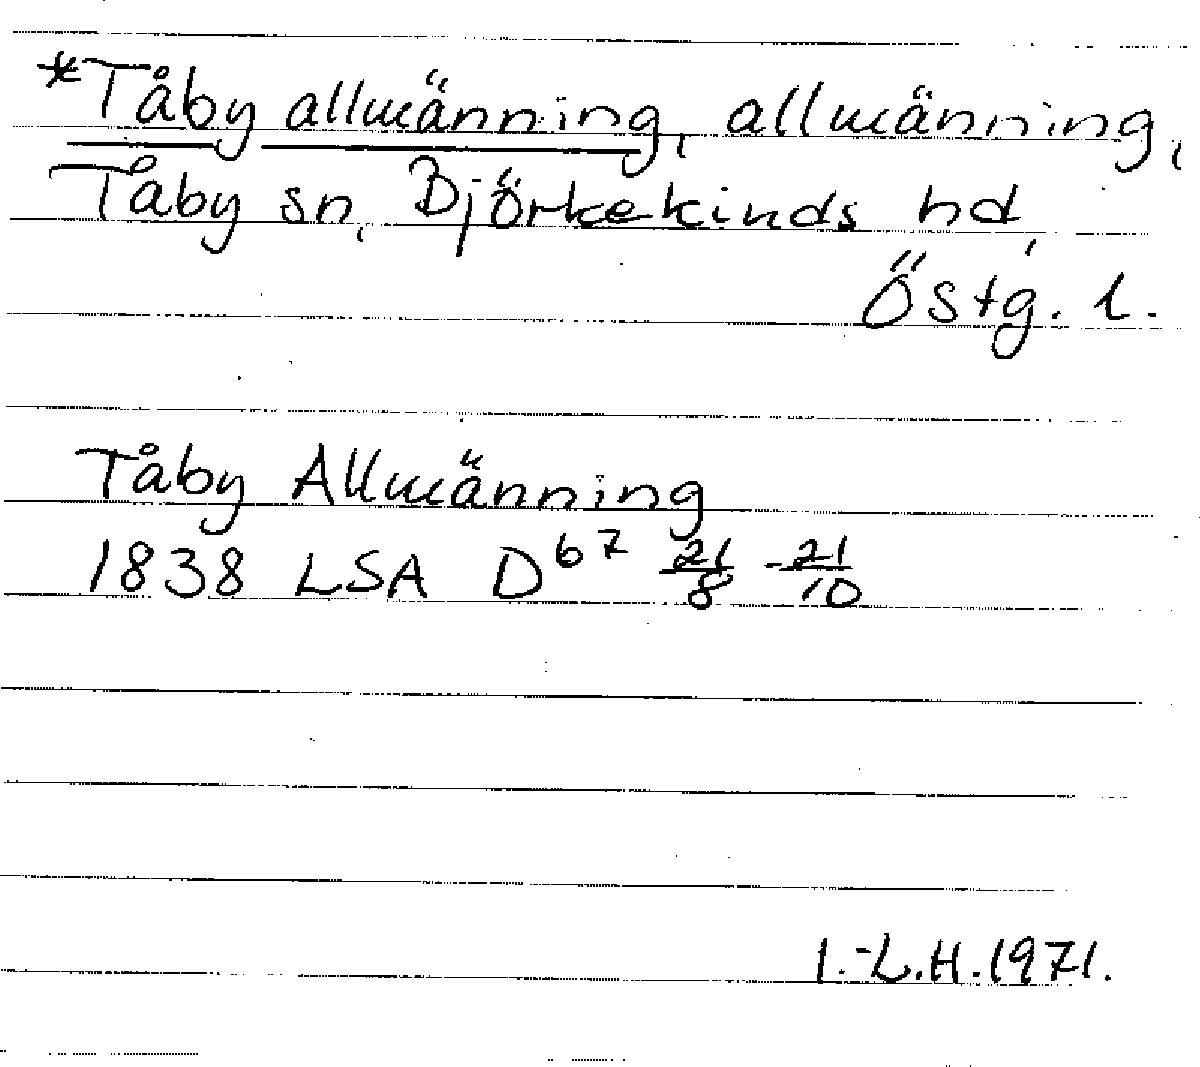 *Tåby allmänning, allmänning,
Tåby sn, Björkekinds hd,
Östg. l.
Tåby Allmänning
1838 LSA D⁶⁷ 21/8 - 21/10
I.-L.H. 1971.